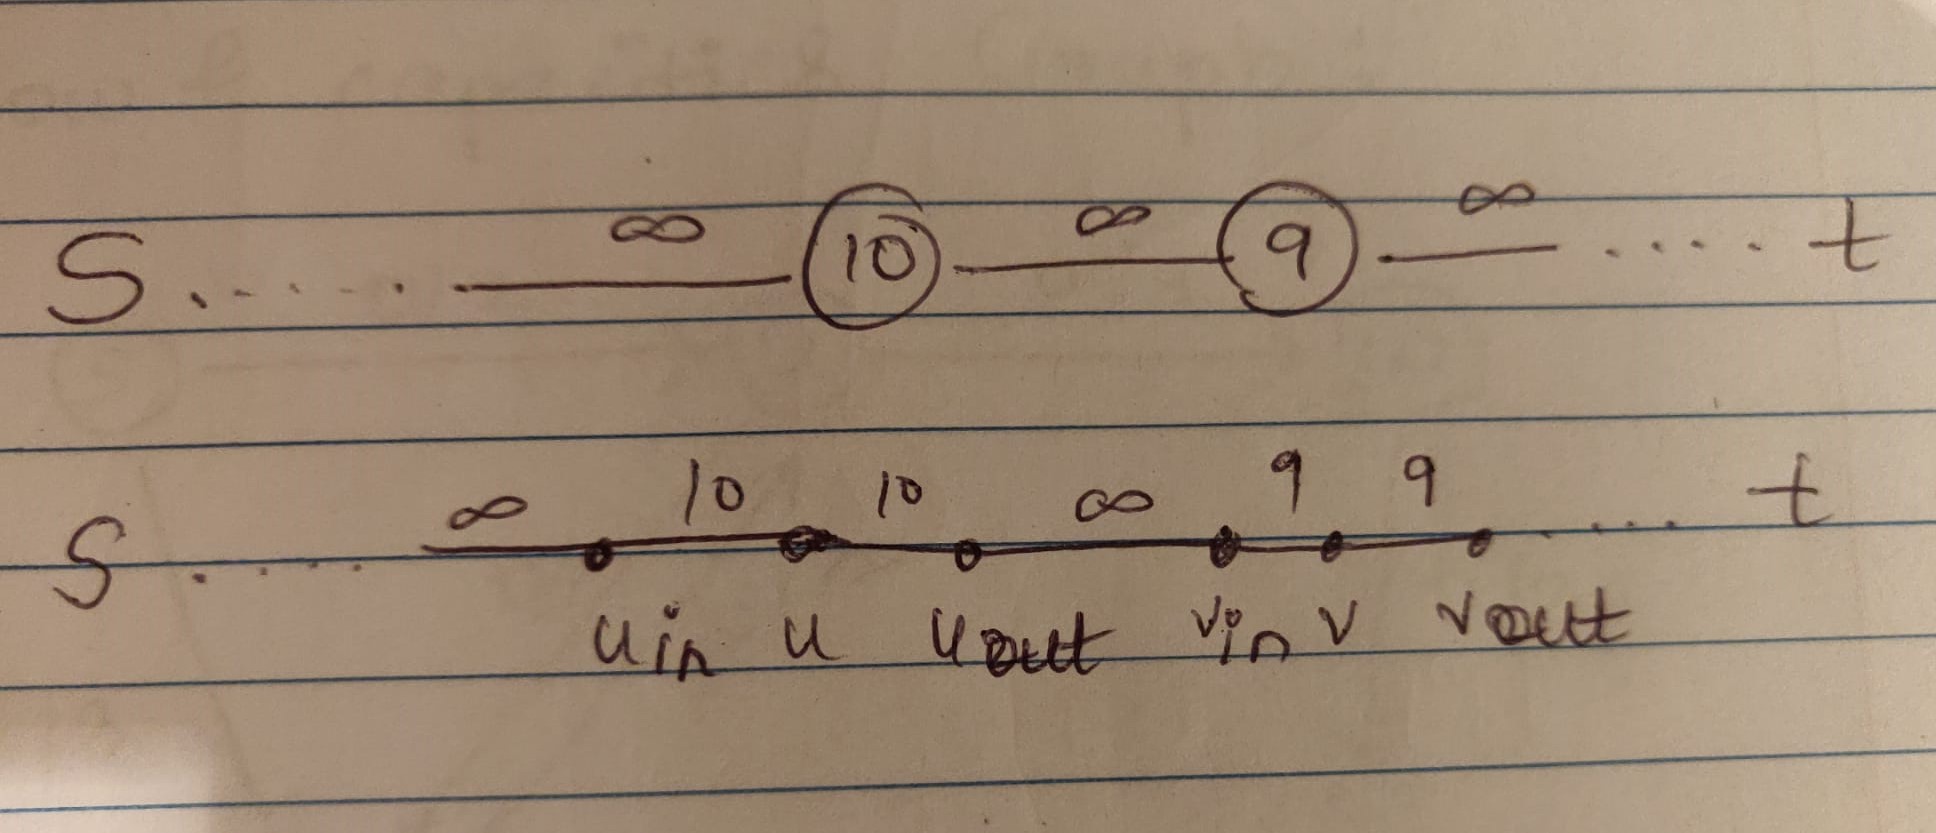 S ..... ∞ 10 ∞ 9 ∞ ..... t
S .... ∞ 10 10 ∞ 9 9 .... t
uin u uout vin v vout